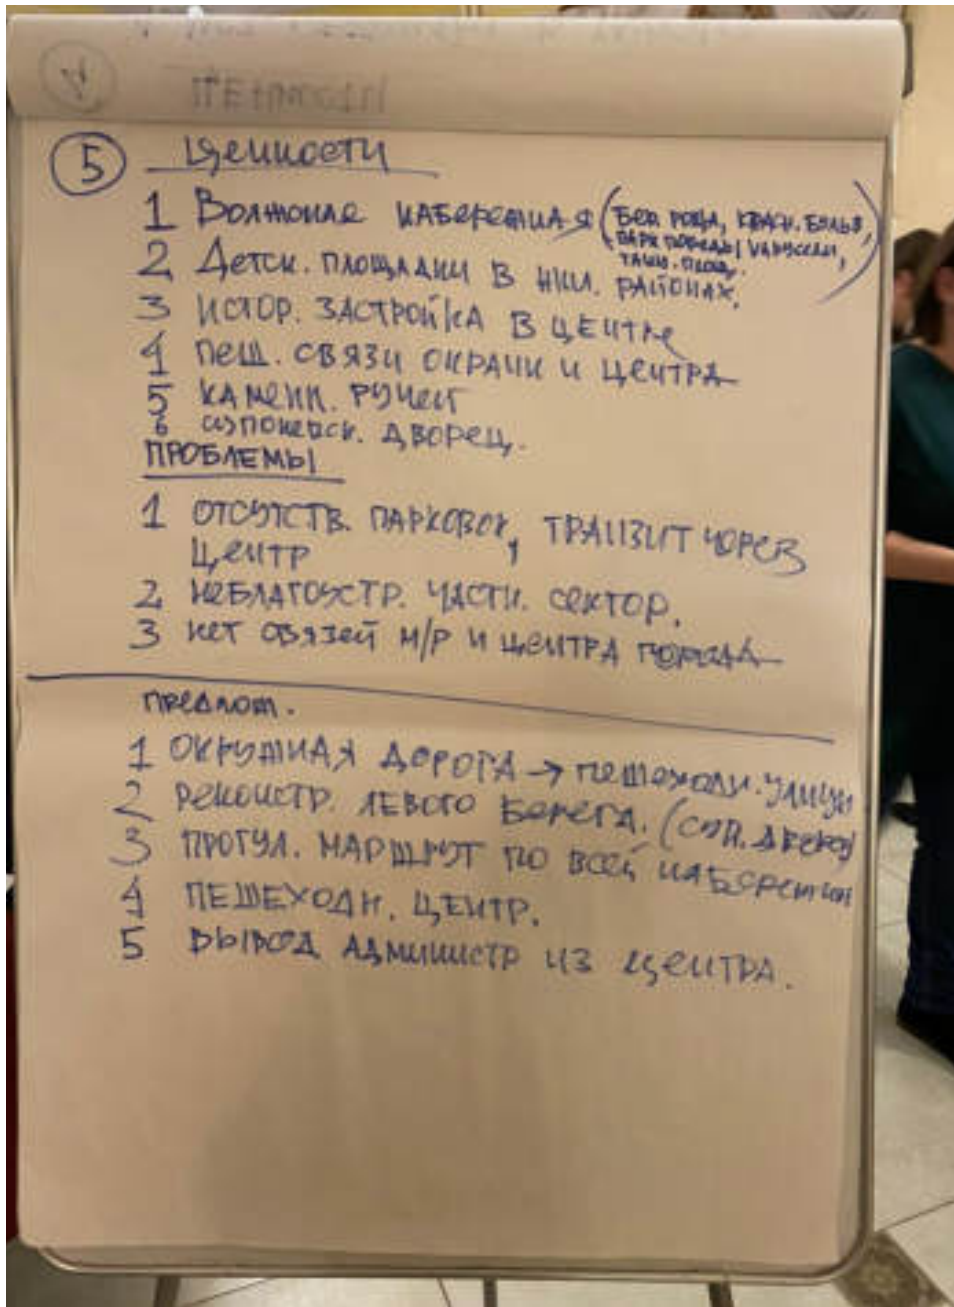 5 Ценности
1 Волжская набережная (Бер. роща, красн. бульв,
парк победы, карусели,
танц. площ.
2 Детск. площадки в жил. районах.
3 истор. застройка в центре
4 пеш. связи окраин и центра
5 каменн. ручей
6 дворец.
ПРОБЛЕМЫ
1 отсутств. парковок, транзит через
центр
2 неблагоустр. частн. сектор.
3 нет связей м/р и центра города
предлож.
1 окружная дорога → пешеходн. улицы
2 реконстр. левого берега.
3 прогул. маршрут по всей набережн
4 пешеходн. центр.
5 вывод администр из центра.